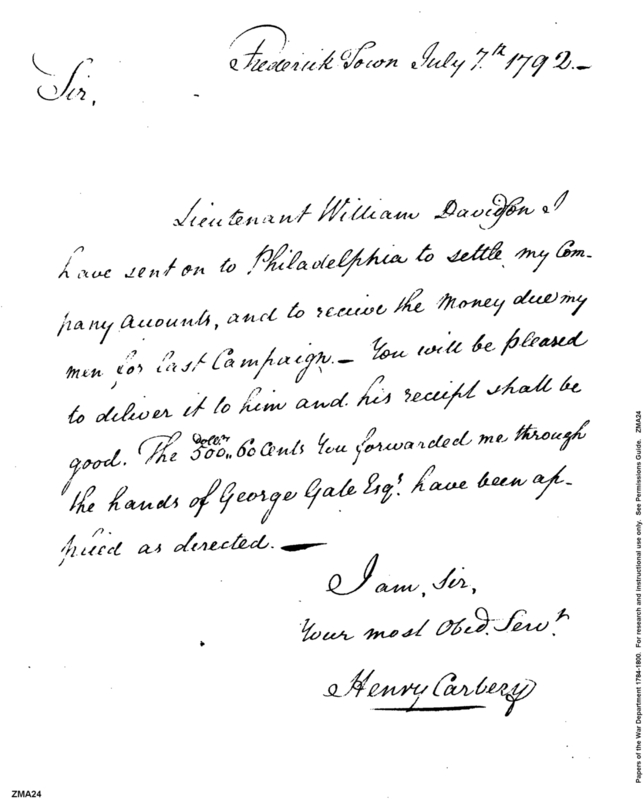 Frederick Town July 7.th 1792.—
Sir,
Lieutenant William Davidson I
have sent on to Philadelphia to settle my Com-
pany Accounts, and to receive the Money due my
men for Last Campaign.— You will be pleased
to deliver it to him and his receipt shall be
good. The 500 Dollrs 60 Cents You forwarded me through
the hands of George Gale Esqr. have been ap-
plied as directed.—
I am, Sir,
Your most Obed. Servt.
Henry Carbery
ZMA24
Papers of the War Department 1784-1800. For research and instructional use only. See Permissions Guide. ZMA24